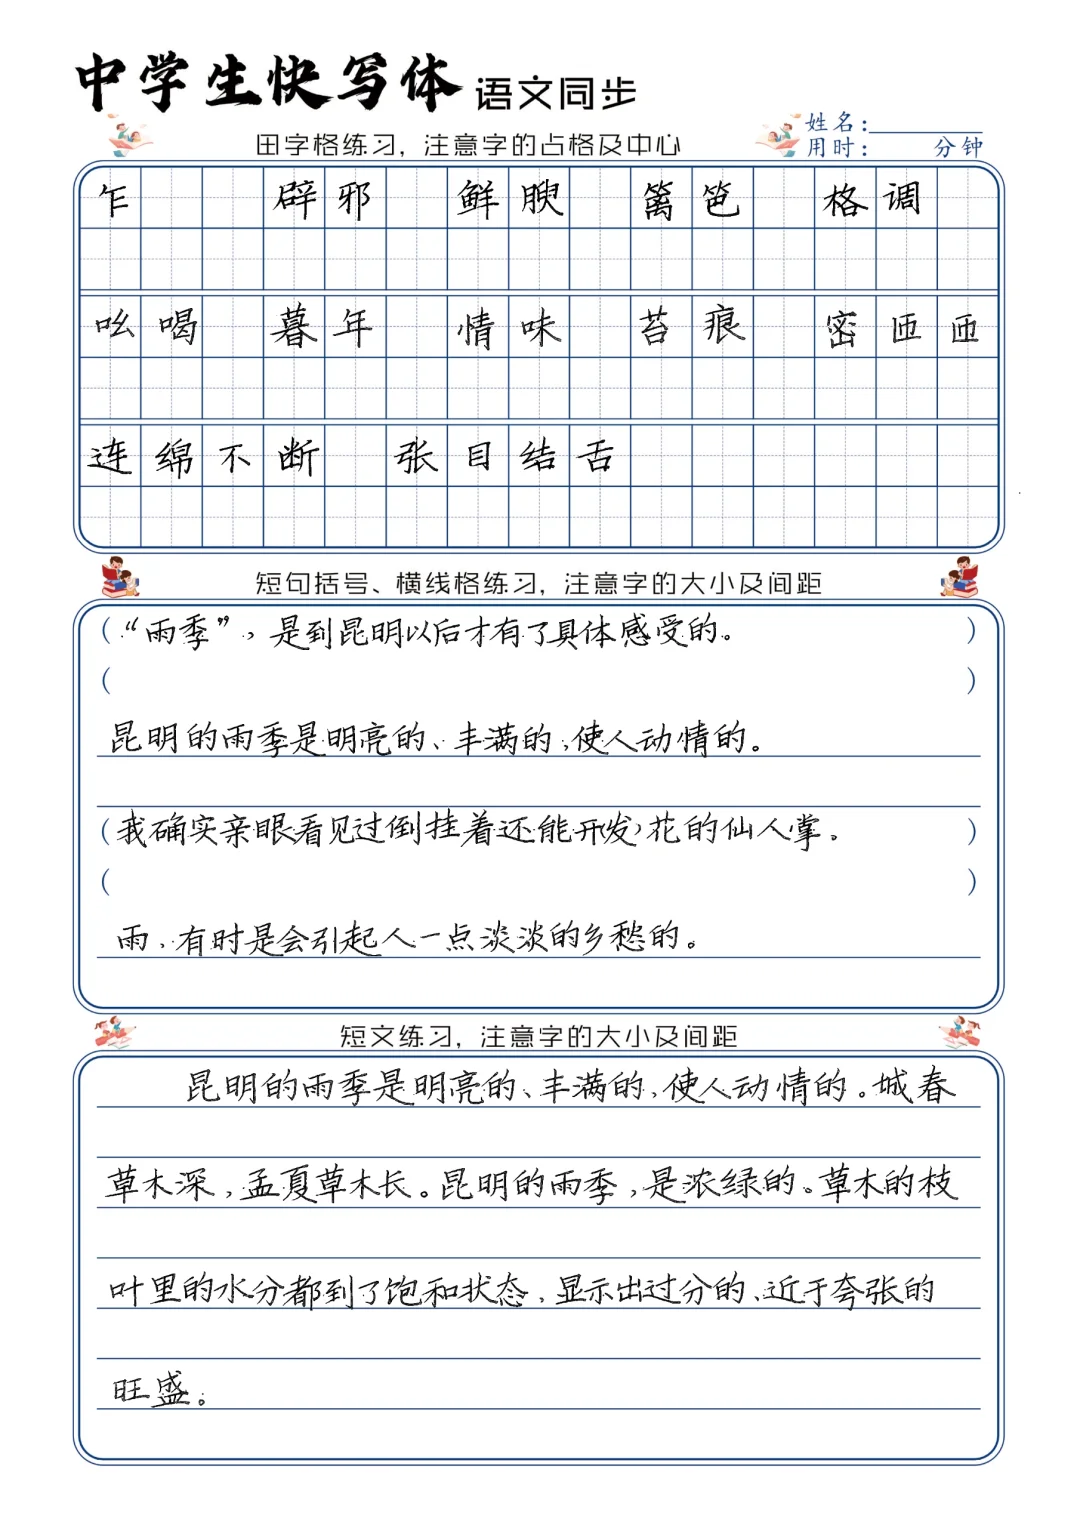 中学生快写体 语文同步
姓名:
田字格练习，注意字的占格及中心
用时: 分钟
乍 辟邪 鲜腴 篱笆 格调
吆喝 暮年 情味 苔痕 密匝匝
连绵不断 张目结舌
短句括号、横线格练习，注意字的大小及间距
(“雨季”，是到昆明以后才有了具体感受的。 )
( )
昆明的雨季是明亮的、丰满的，使人动情的。
(我确实亲眼看见过倒挂着还能开花的仙人掌。 )
( )
雨，有时是会引起人一点淡淡的乡愁的。
短文练习，注意字的大小及间距
昆明的雨季是明亮的、丰满的，使人动情的。城春
草木深，孟夏草木长。昆明的雨季，是浓绿的。草木的枝
叶里的水分都到了饱和状态，显示出过分的、近于夸张的
旺盛。